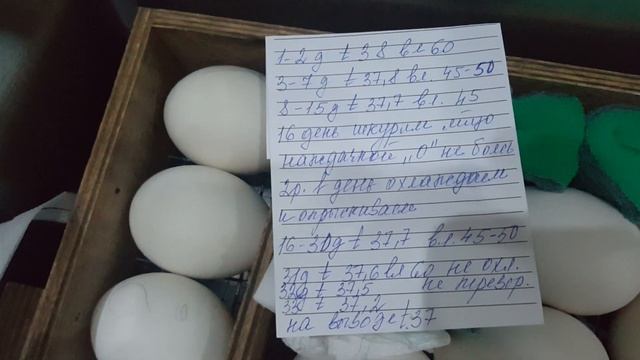 1-2 д t 38 вл 60
3-7 д t 37,8 вл. 45-50
8-15 д t 37,7 вл. 45
16 день шкурим яйцо
наждачной "0" не боясь
2р. в день охлаждаем
и опрыскиваем
16-30д t 37,7 вл. 45-50
31д t 37,6 вл 60 не охл.
32д t 37,5 не перевор.
33д t 37,2
на выводе t 37